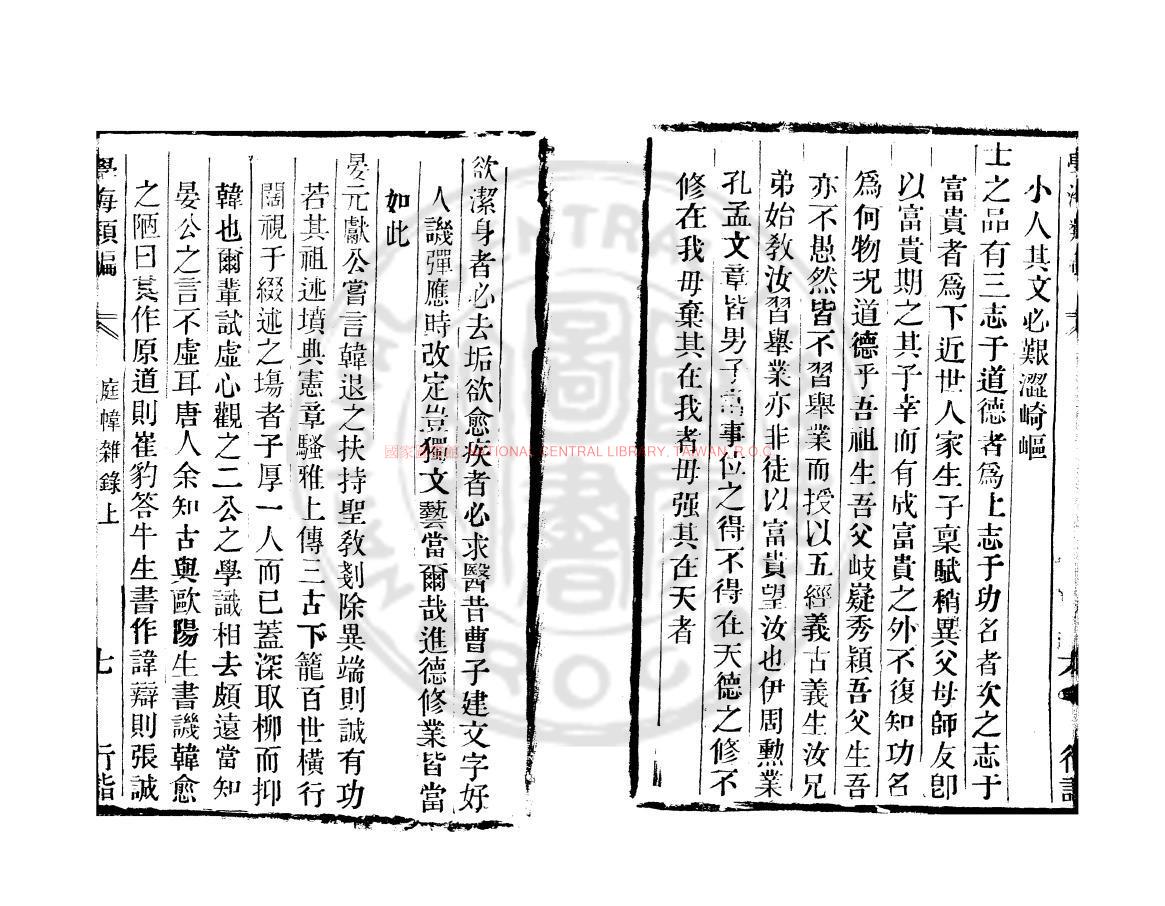 小人其文必艱澀崎嶇
士之品有三志于道德者爲上志于功名者次之志于
富貴者爲下近世人家生子稟賦稍異父母師友卽
以富貴期之其子幸而有成富貴之外不復知功名
爲何物况道德乎吾祖生吾父岐嶷秀穎吾父生吾
亦不愚然皆不習舉業而授以五經義古義生汝兄
弟始敎汝習舉業亦非徒以富貴望汝也伊周勲業
孔孟文章皆男子當事位之得不得在天德之修不
修在我毋棄其在我者毋强其在天者
欲潔身者必去垢欲愈疾者必求醫昔曹子建文字好
人譏彈應時改定豈獨文藝當爾哉進德修業皆當
如此
晏元獻公嘗言韓退之扶持聖敎剗除異端則誠有功
若其祖述墳典憲章騷雅上傳三古下籠百世橫行
闊視于綴述之塲者子厚一人而已蓋深取柳而抑
韓也爾輩試虛心觀之二公之學識相去頗遠當知
晏公之言不虛耳唐人余知古與歐陽生書譏韓愈
之陋曰其作原道則崔豹答牛生書作諱辯則張誠
學海類編
庭幃雜錄上
七
行詣
國家圖書館 NATIONAL CENTRAL LIBRARY, TAIWAN, R.O.C